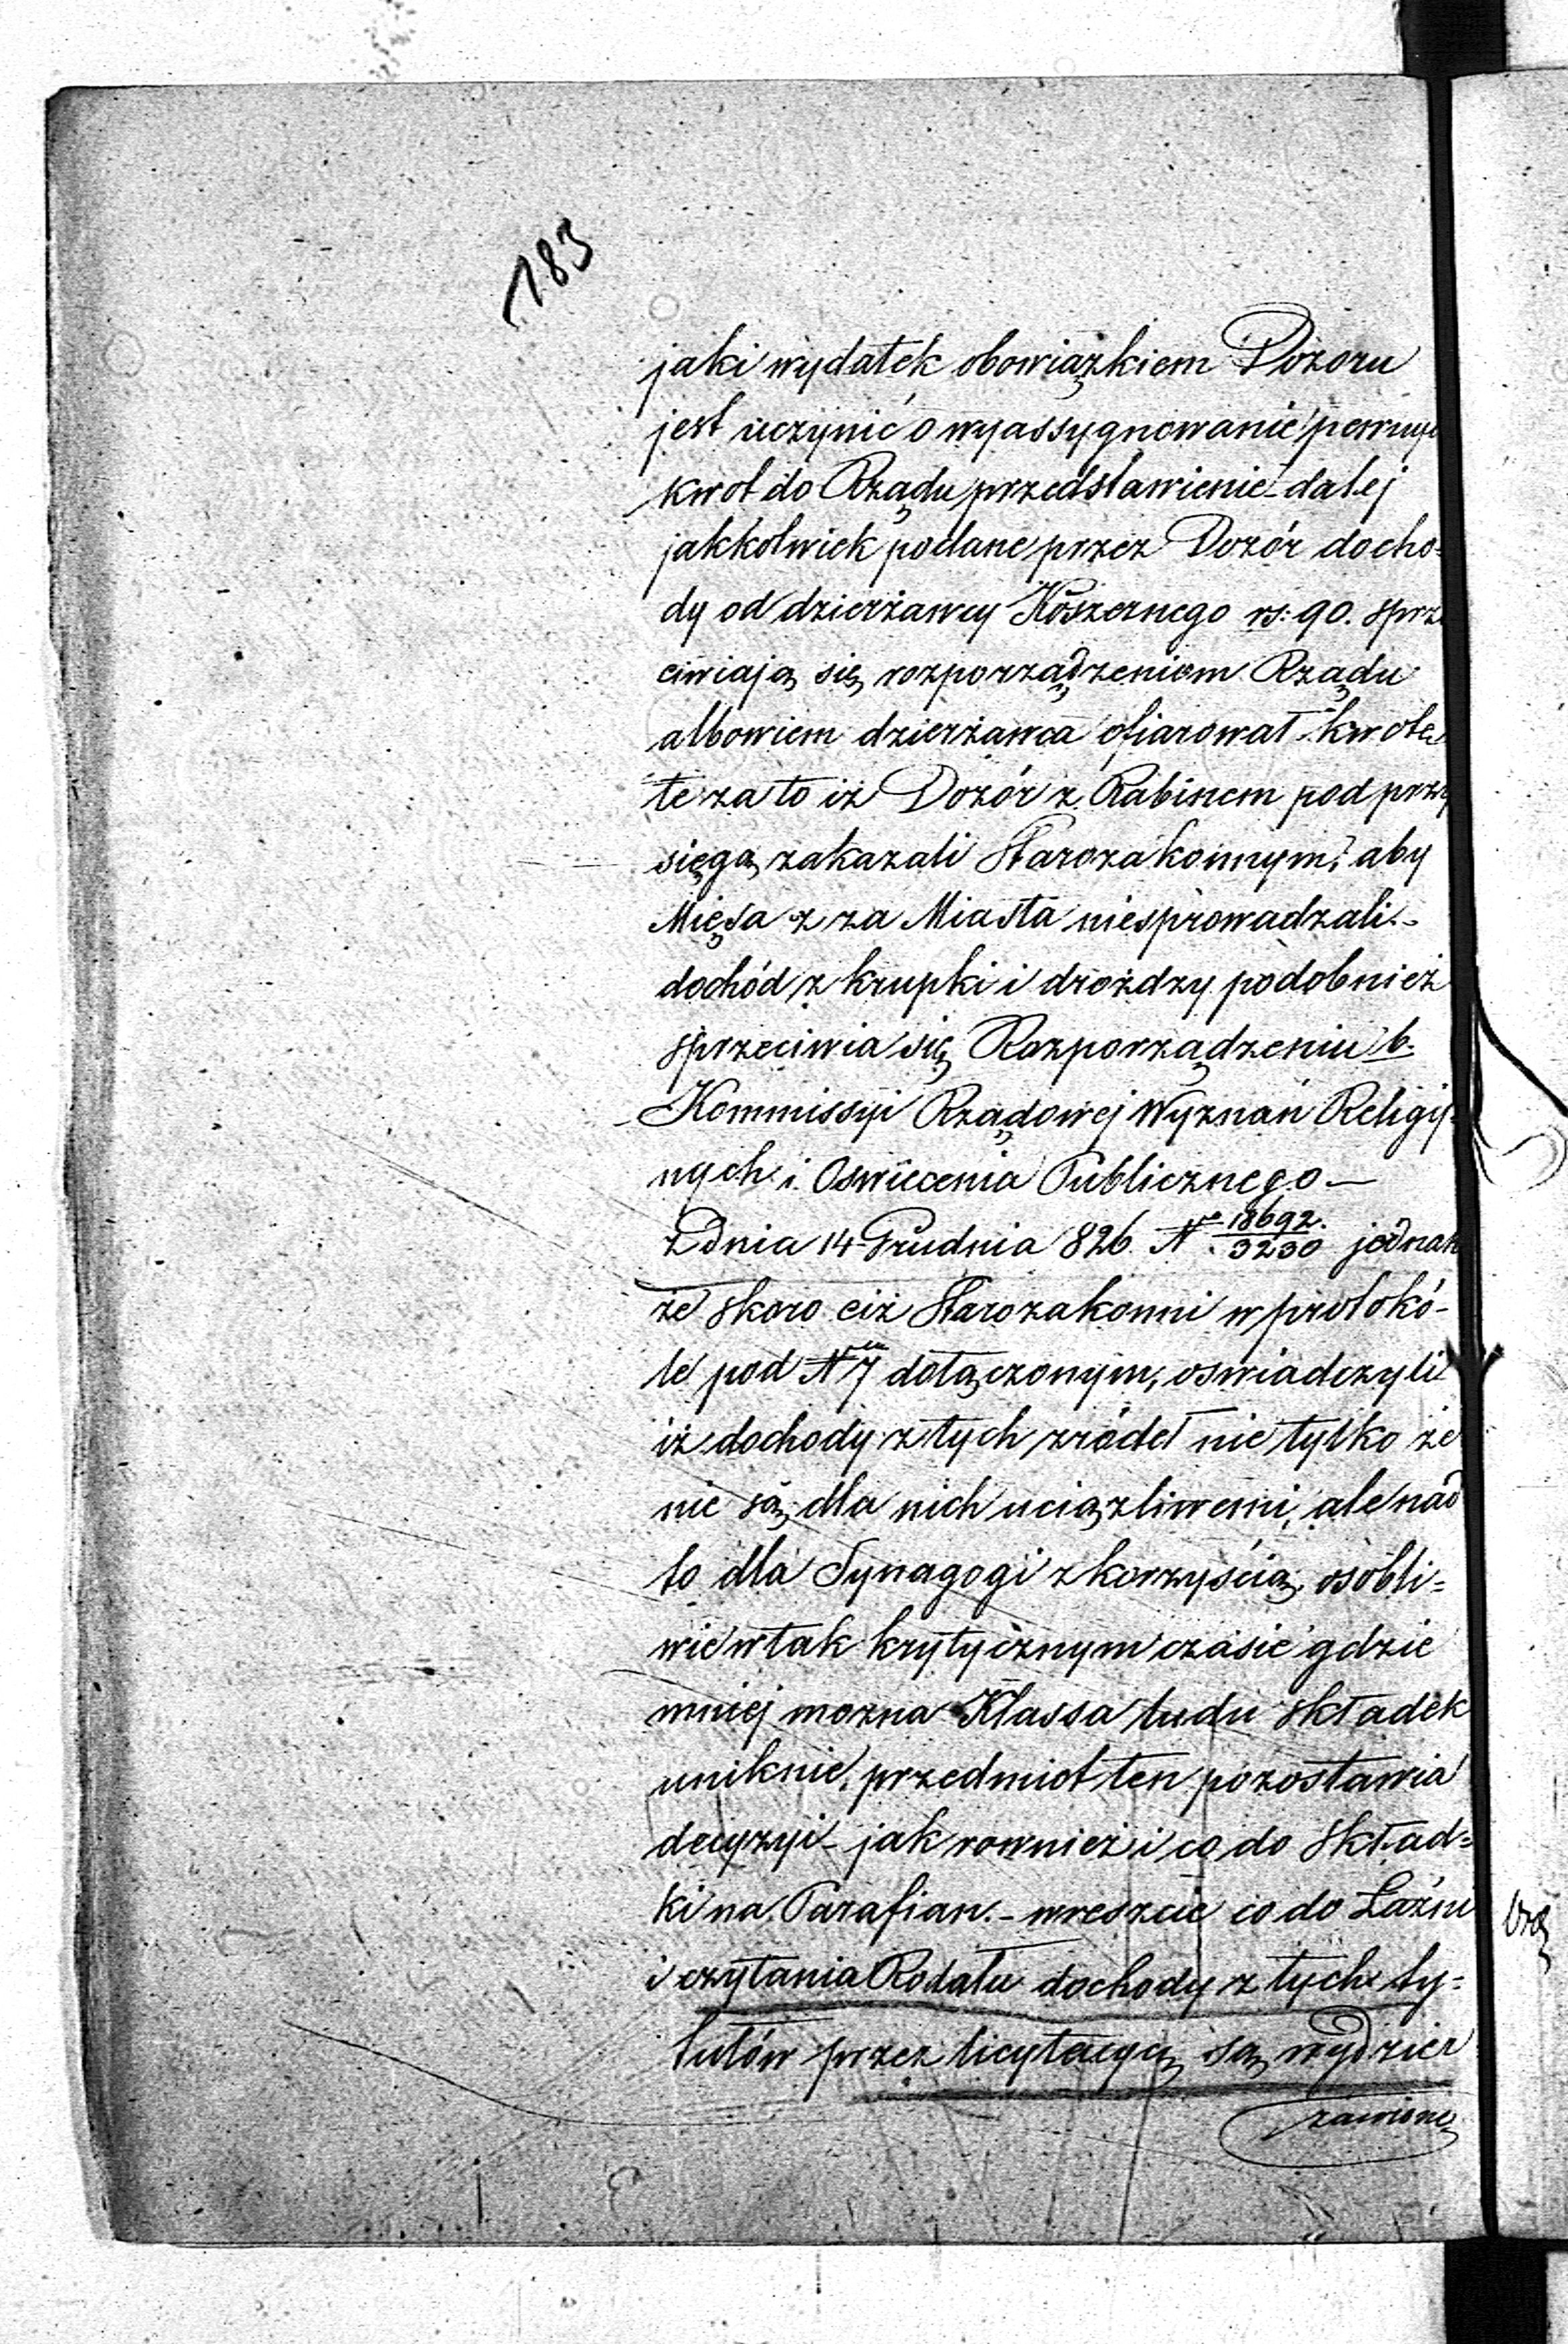 183
jaki wydatek obowiązkiem Dozoru
jest uczynić o wyassygnowanie pewnyc
kwot do Rządu przedstawienie - dalej
jakkolwiek podane przez Dozór docho-
dy od dzierżawcy Koszernego rs: 90. sprze
ciwiają się rozporządzeniom Rządu
albowiem dzierżawca ofiarował kwotę
te za to iż Dozór z Rabinem pod przy
sięgą zakazali Starozakonnym, aby
Mięsa z za Miasta niesprowadzali. -
dochód z krupki i drożdzy podobnież
sprzeciwia się Rozporządzeniu b.
Kommissyi Rządowej Wyznań Religij
nych i Oswiecenia Publicznego —
z dnia 14 Grudnia 826. No 18692./3230 jednak
że skoro ciż Starozakonni w protokó-
le pod No 7 dołączonym, oswiadczyli
iż dochody z tych zródeł nie tylko że
nie są dla nich uciązliwemi, ale nad
to dla Synagogi z korzyścią, osobli=
wie w tak krytycznym czasie gdzie
mniej można Klassa ludu składek
uniknie, przedmiot ten pozostawia
decyzyi - jak rownież i co do skład=
ki na Parafian. - wreszcie co do Łaźni
i czytania Rodału dochody z tych ty=
tułów przez licytacyą są wydzier
żawione